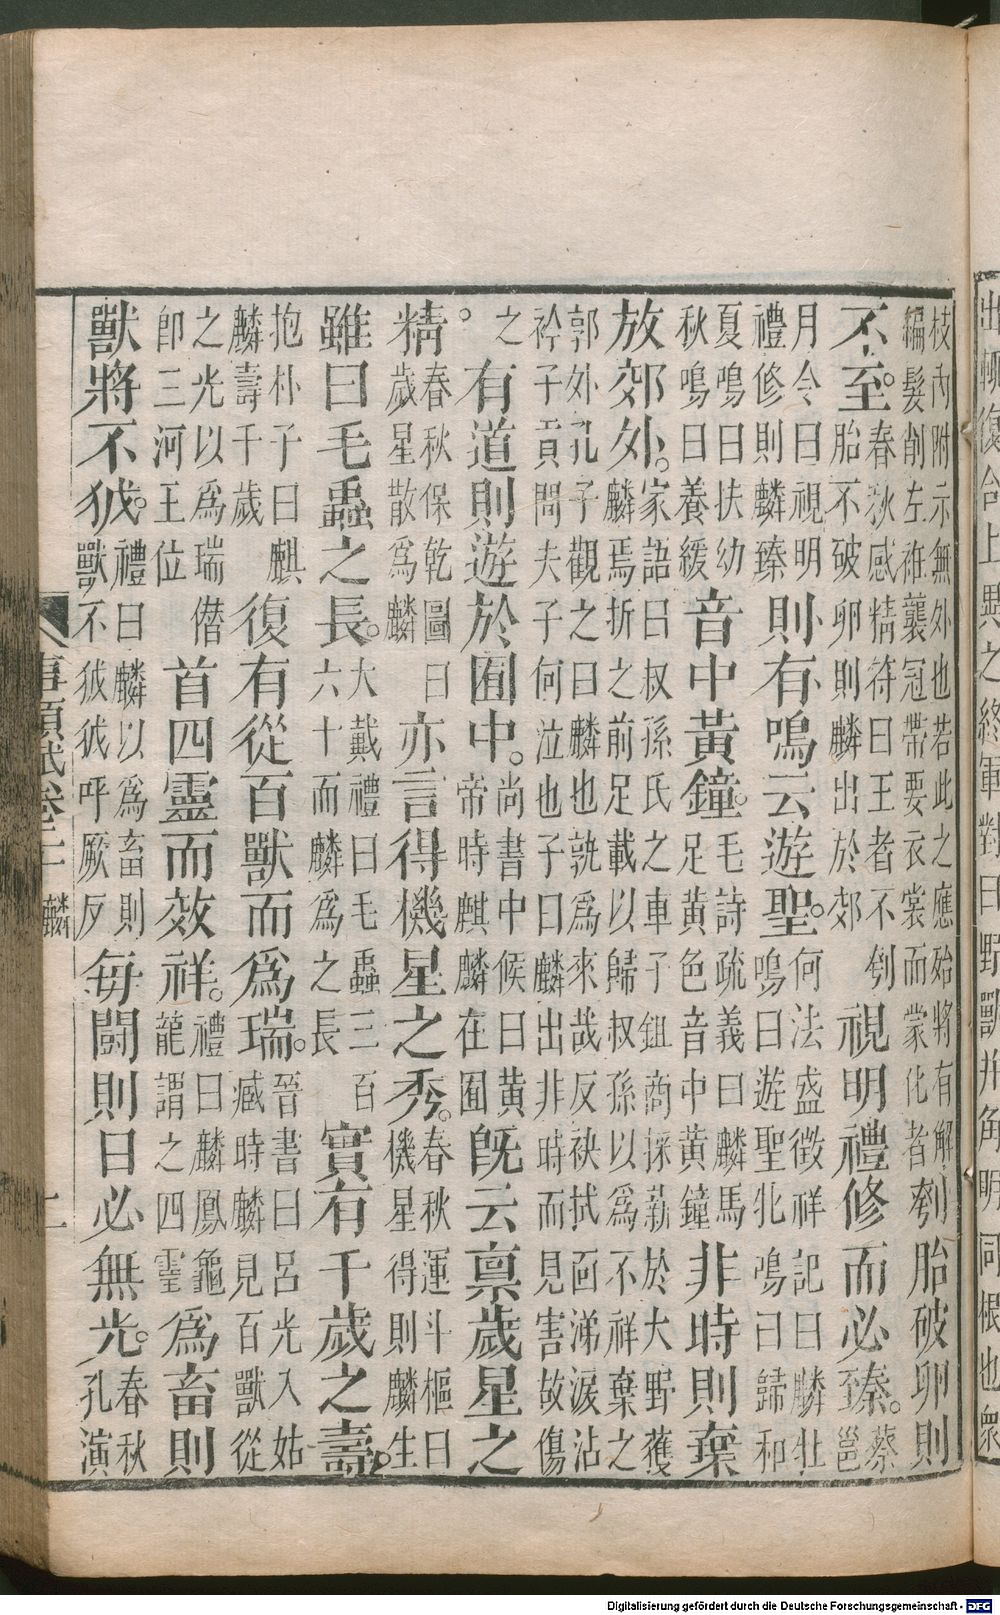 出輒復合上異之終軍對曰野獸并角明同根也衆
枝內附示無外也若此之應殆將有解
編髮削左袵襲冠帶要衣裳而蒙化者
刳胎破卵則
不至。
春秋感精符曰王者不刳
胎不破卵則麟出於郊
視明禮修而必臻。
蔡
邕
月令曰視明
禮修則麟臻
則有鳴云遊聖。
何法盛徵祥記曰麟牡
鳴曰遊聖牝鳴曰歸和
夏鳴曰扶幼
秋鳴曰養綏
音中黃鐘。
毛詩疏義曰麟馬
足黃色音中黃鐘
非時則棄
放郊外。
家語曰叔孫氏之車子鉏商採薪於大野獲
麟焉折之前足載以歸叔孫以爲不祥棄之
郭外孔子觀之曰麟也孰爲來哉反袂拭面涕淚沾
衿子貢問夫子何泣也子曰麟出非時而見害故傷
之。
有道則遊於囿中。
尚書中候曰黃
帝時麒麟在囿
旣云禀歲星之
精。
春秋保乾圖曰
歲星散爲麟
亦言得機星之秀。
春秋運斗樞曰
機星得則麟生
雖曰毛蟲之長。
大戴禮曰毛蟲三百
六十而麟爲之長
實有千歲之壽。
抱朴子曰麒
麟壽千歲
復有從百獸而爲瑞。
晉書曰呂光入姑
臧時麟見百獸從
之光以爲瑞僭
卽三河王位
首四靈而效祥。
禮曰麟鳳龜
龍謂之四靈
爲畜則
獸將不狘。
禮曰麟以爲畜則
獸不狘狘呼厥反
每鬪則日必無光。
春秋
孔演
事類賦卷二十 麟
Digitalisierung gefördert durch die Deutsche Forschungsgemeinschaft - DFG